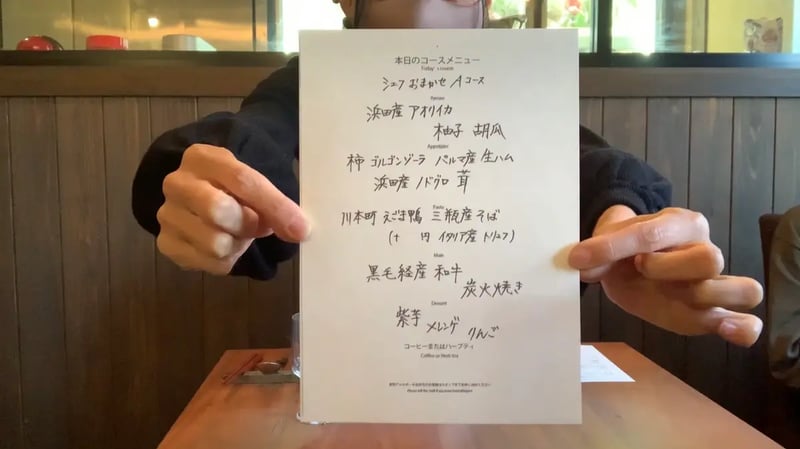 本日のコースメニュー
Today's course
シェフ おまかせ Aコース
浜田産 アオリイカ
柚子 胡瓜
Appetizer
柿 ゴルゴンゾーラ パルマ産 生ハム
浜田産 ノドグロ 茸
Pasta
川本町 えごま鴨 三瓶産そば
(+ 円 イタリア産 トリュフ)
Main
黒毛経産 和牛
炭火焼き
Dessert
紫芋 メレンゲ りんご
コーヒーまたはハーブティ
Coffee or Herb tea